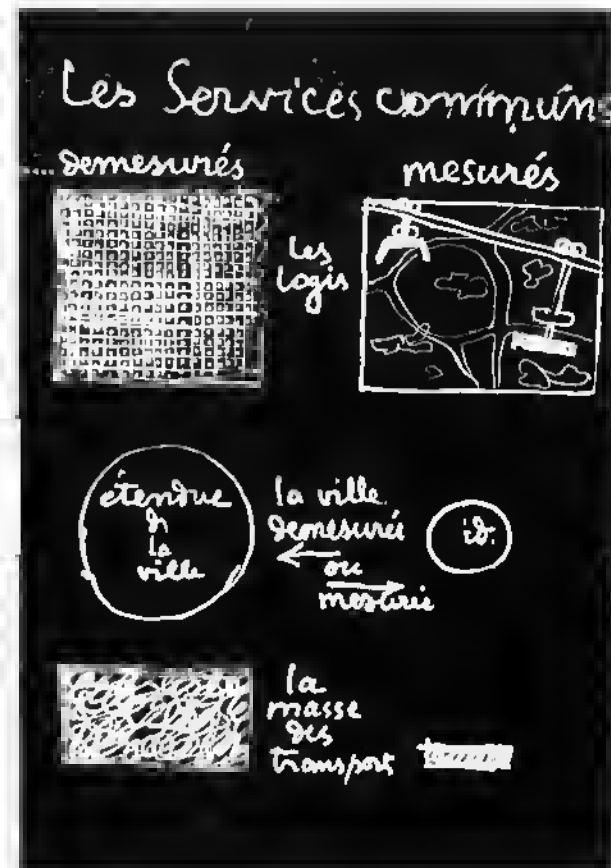 Les Services communs
demesurés
mesurés
Les
Logis
étendue
de
la
ville
la ville
demesurée
ou
mesurée
id.
la
masse
des
transport